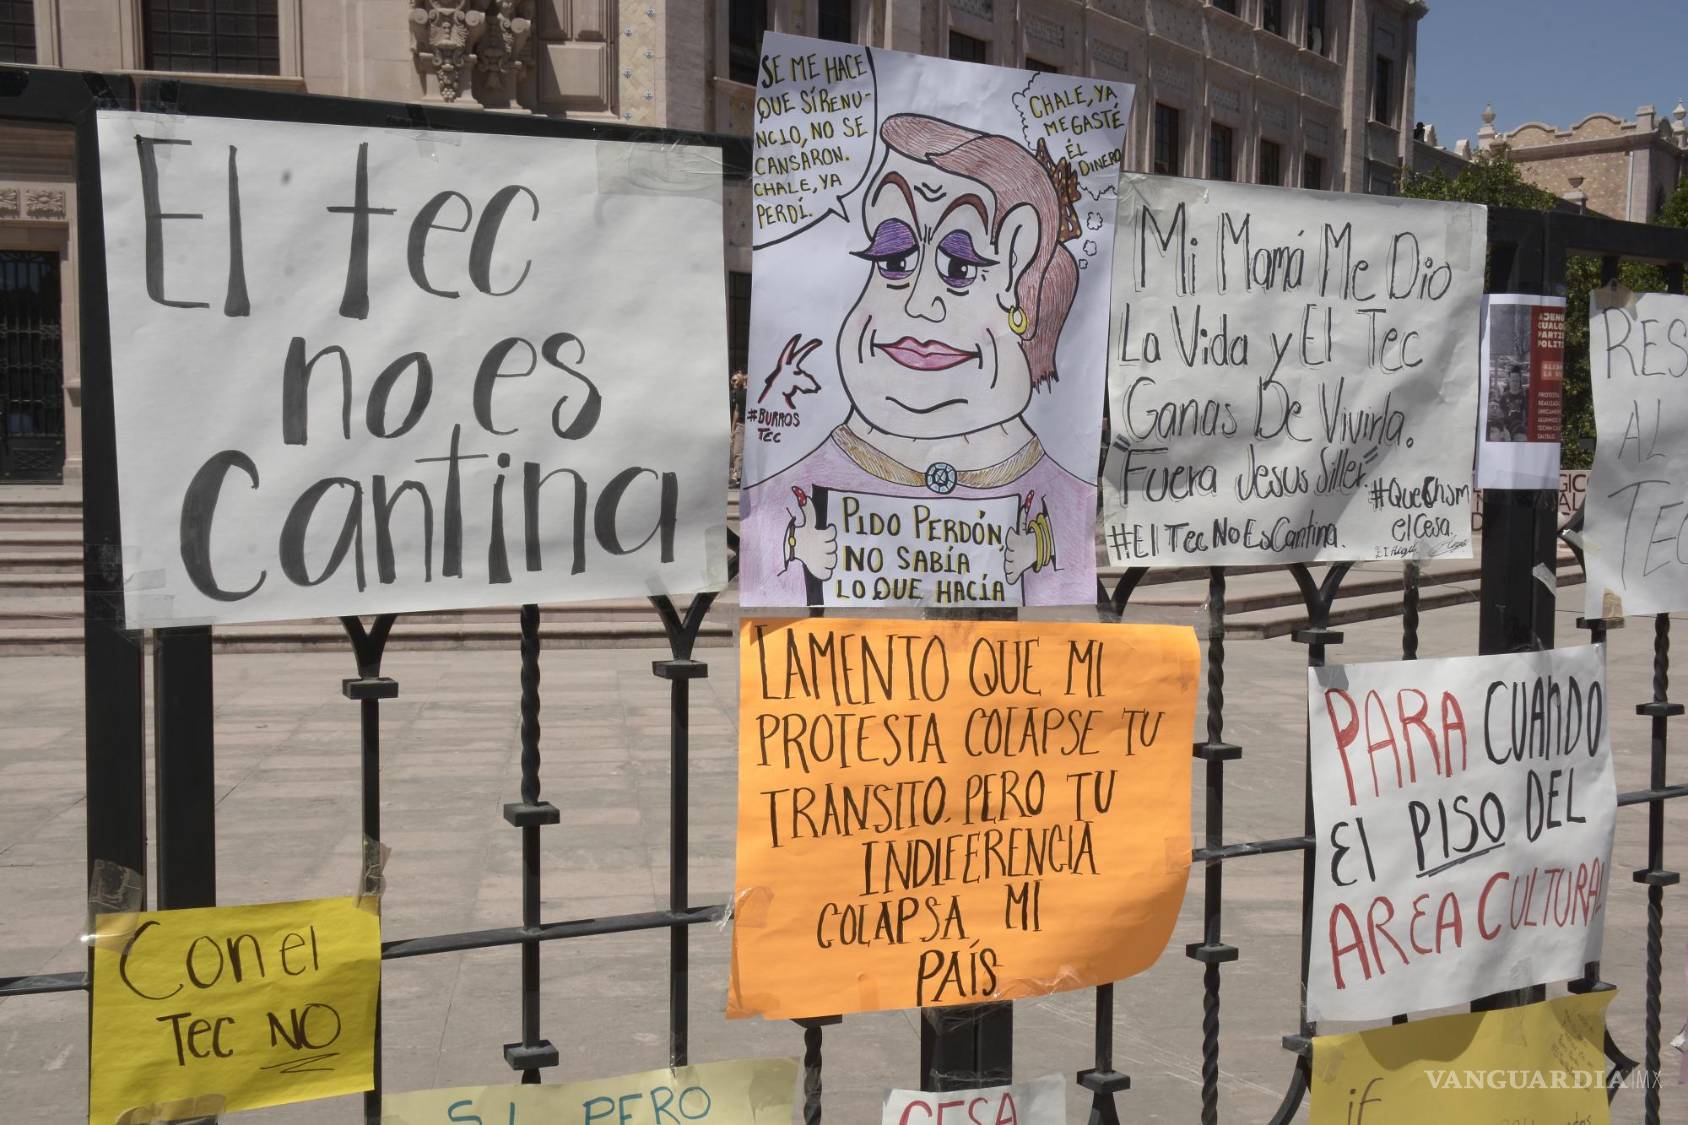 El tec
no es
cantina
SE ME HACE
QUE SÍ RENU-
NCIO, NO SE
CANSARON.
CHALE, YA
PERDÍ.
CHALE, YA
ME GASTÉ
ÉL
DINERO
#BURROS
TEC
PIDO PERDÓN,
NO SABÍA
LO QUE HACÍA
Mi Mamá Me Dio
La Vida y El Tec
Ganas De Vivirla.
"Fuera Jesus Siller."
#ElTecNoEsCantina.
el Cesa.
RES
AL
TEC
LAMENTO QUE MI
PROTESTA COLAPSE TU
TRÁNSITO, PERO TU
INDIFERENCIA
COLAPSA MI
PAÍS
PARA CUANDO
El PISO DEL
AREA CULTURAL
Con el
Tec NO
SI PERO
CESA
if
VANGUARDIA|MX